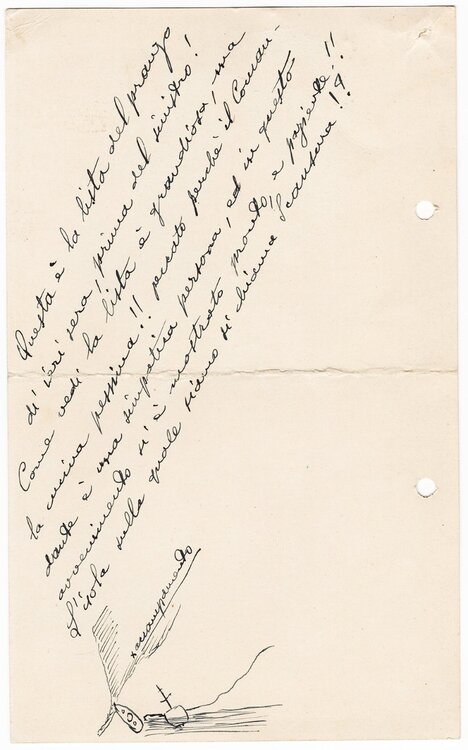 Questa è la lista del pranzo
di ieri sera, prima del sinistro!
Come vedi la lista è grandiosa, ma
la cucina pessima!! peccato perchè il Coman-
dante è una simpatica persona, ed in questo
avvenimento si è mostrato pronto, e paziente!!
L'isola sulla quale siamo si chiama
accampamento